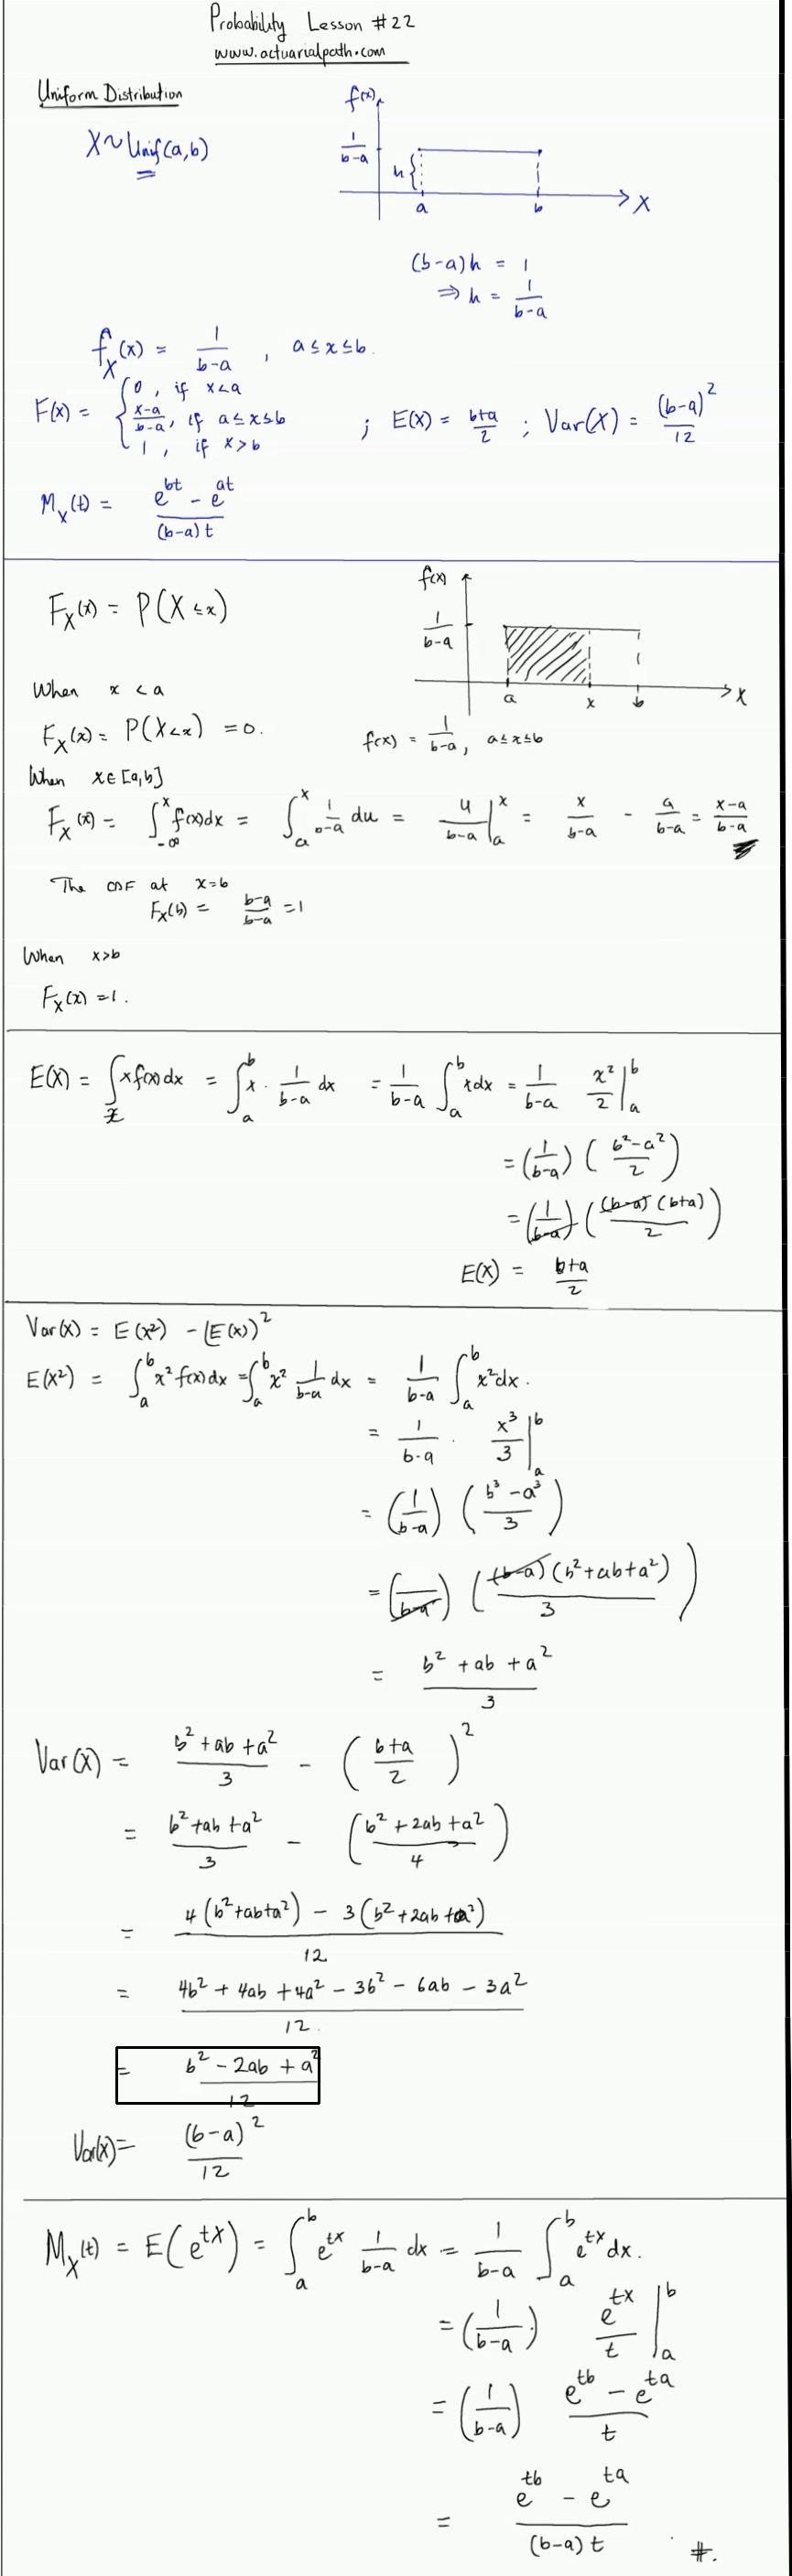 Probability Lesson #22
www.actuarialpath.com
Uniform Distribution
X ~ Unif(a,b)
f(x)
1/(b-a)
h {
a b X
(b-a)h = 1
⇒ h = 1/(b-a)
f_X(x) = 1/(b-a) , a ≤ x ≤ b.
F(x) = { 0 , if x<a
(x-a)/(b-a), if a ≤ x ≤ b
1 , if x > b
; E(X) = (b+a)/2 ; Var(X) = (b-a)^2/12
M_X(t) = (e^{bt} - e^{at})/((b-a) t)
F_X(x) = P(X ≤ x)
f(x)
1/(b-a)
a x b X
When x < a
F_X(x) = P(X<x) = 0.
f(x) = 1/(b-a), a ≤ x ≤ b
When x ∈ [a,b]
F_X(x) = ∫_{-∞}^{x} f(x)dx = ∫_a^x 1/(b-a) du = u/(b-a) |_a^x = x/(b-a) - a/(b-a) = (x-a)/(b-a)
The CDF at x=b
F_X(b) = (b-a)/(b-a) = 1
When x>b
F_X(x) = 1.
E(X) = ∫_x x f(x) dx = ∫_a^b x · 1/(b-a) dx = 1/(b-a) ∫_a^b x dx = 1/(b-a) x^2/2 |_a^b
= (1/(b-a)) ((b^2-a^2)/2)
= (1/(b-a)) ((b-a)(b+a)/2)
E(X) = (b+a)/2
Var(X) = E(X^2) - (E(X))^2
E(X^2) = ∫_a^b x^2 f(x) dx = ∫_a^b x^2 1/(b-a) dx = 1/(b-a) ∫_a^b x^2 dx.
= 1/(b-a) · x^3/3 |_a^b
= (1/(b-a)) ((b^3 - a^3)/3)
= (1/(b-a)) ((b-a)(b^2+ab+a^2)/3)
= (b^2 + ab + a^2)/3
Var(X) = (b^2 + ab + a^2)/3 - ((b+a)/2)^2
= (b^2 + ab + a^2)/3 - ((b^2 + 2ab + a^2)/4)
= (4(b^2+ab+a^2) - 3(b^2+2ab+a^2))/12
= (4b^2 + 4ab + 4a^2 - 3b^2 - 6ab - 3a^2)/12.
= (b^2 - 2ab + a^2)/12
Var(X) = (b-a)^2/12
M_X(t) = E(e^{tX}) = ∫_a^b e^{tx} 1/(b-a) dx = 1/(b-a) ∫_a^b e^{tx} dx.
= (1/(b-a)) e^{tx}/t |_a^b
= (1/(b-a)) (e^{tb} - e^{ta})/t
= (e^{tb} - e^{ta})/((b-a) t) #.